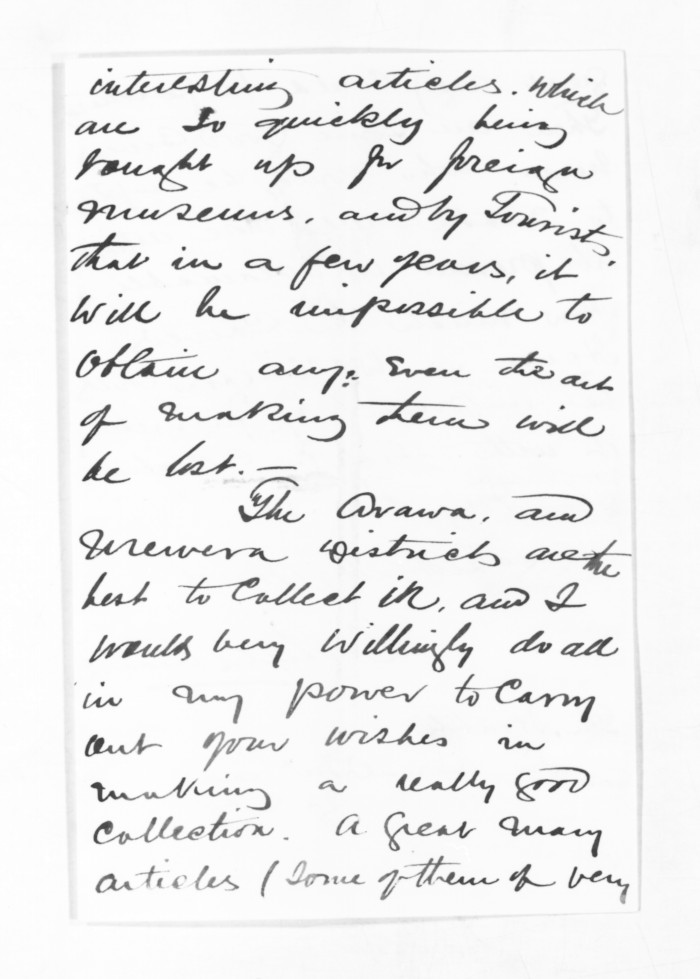 interesting articles. which
are so quickly being
bought up for foreign
museums. and by Tourists.
that in a few years, it
will be impossible to
obtain any: Even the art
of making them will
be lost. —
The Arawa. and
Urewera Districts are the
best to Collect in, and I
would very willingly do all
in my power to Carry
out your wishes in
making a really good
Collection. A great many
articles (some of them of very